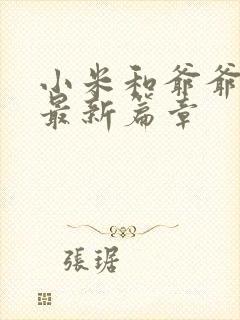 小米和爷爷
最新篇章
張琚